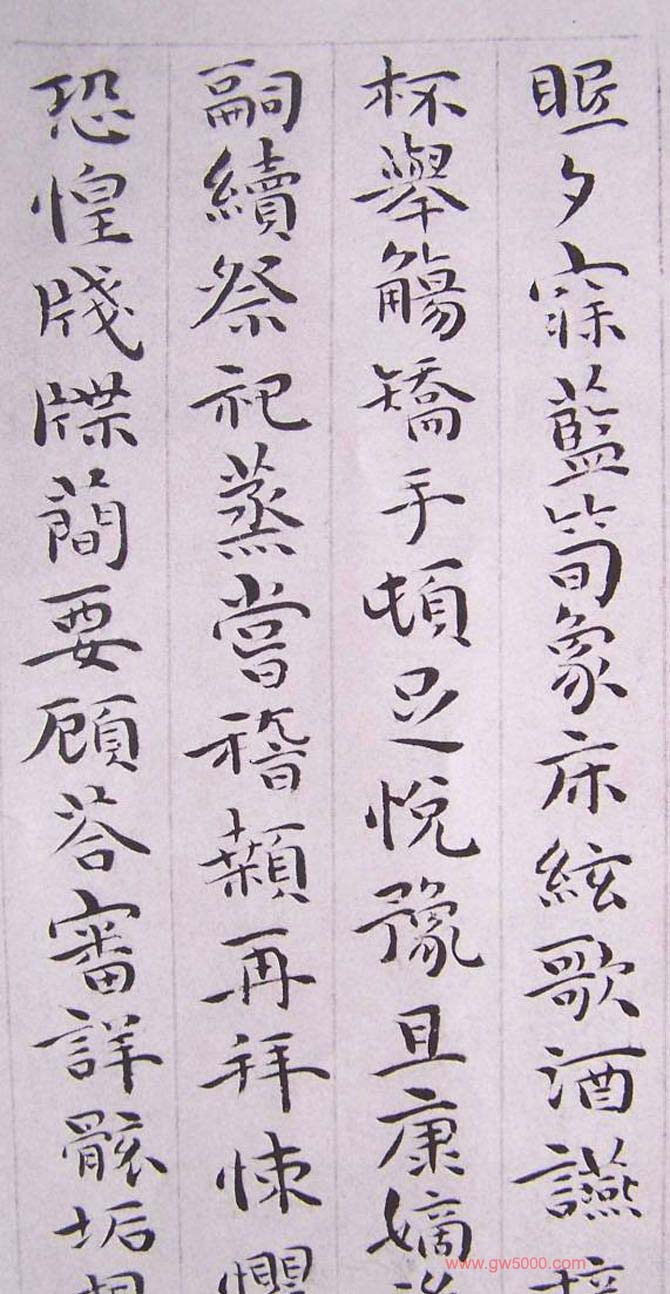 眠夕寐藍笱象床絃歌酒讌接
杯舉觴矯手頓足悅豫且康嫡
嗣續祭祀蒸嘗稽顙再拜悚懼
恐惶牋牒蕳要顧荅審詳骸垢想
www.gw5000.com